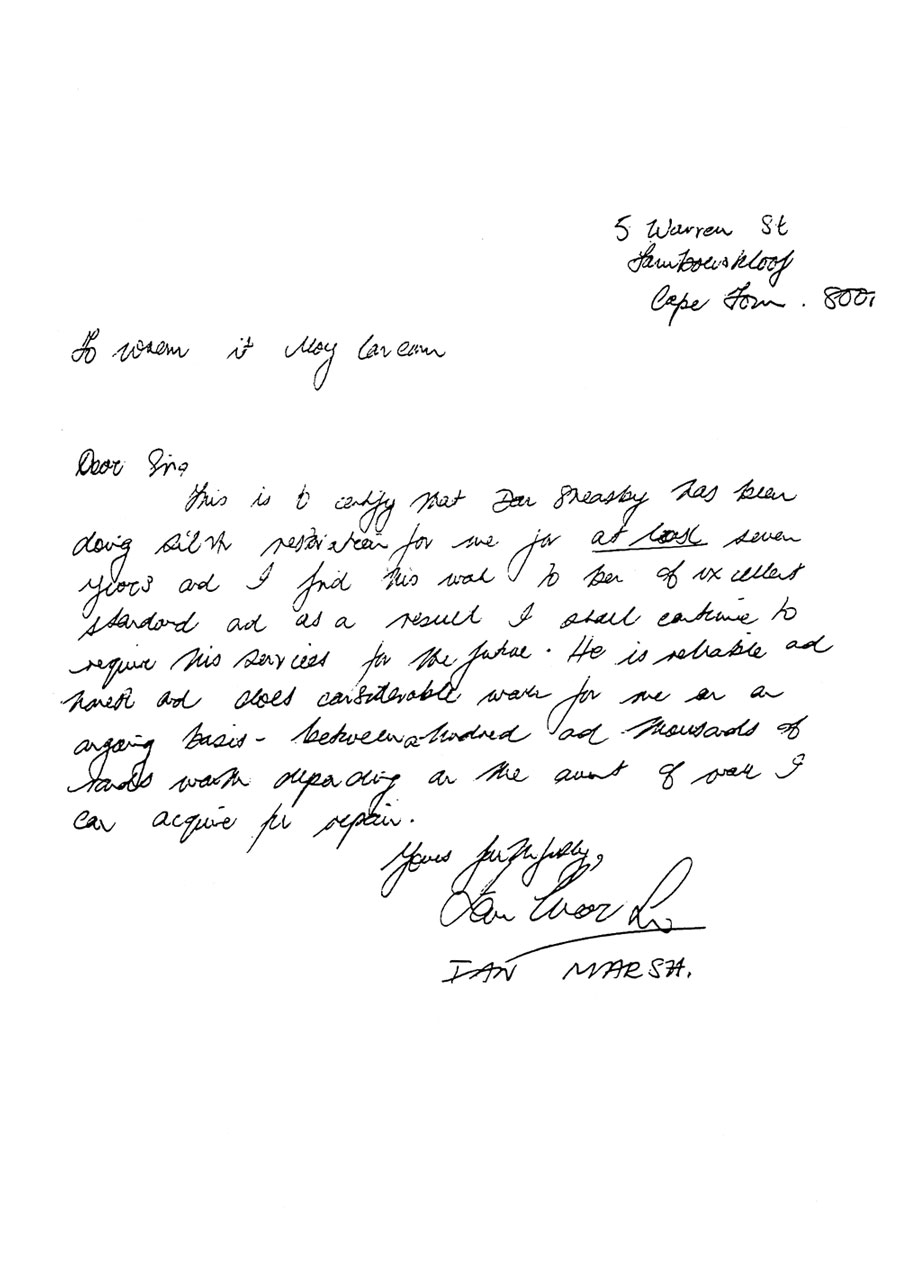 5 Warren St
Tamboerskloof
Cape Town . 8001
To whom it May Concern
Dear Sir,
This is to certify that Sneasby has been
doing restoration for me for at least seven
years and I find his work to be of excellent
standard and as a result I shall continue to
require his services for the future. He is reliable and
honest and does considerable work for me on an
ongoing basis - between a hundred and thousands of
rands worth depending on the amount of work I
can acquire for repair.
Yours faithfully,
Ian
IAN MARSH.